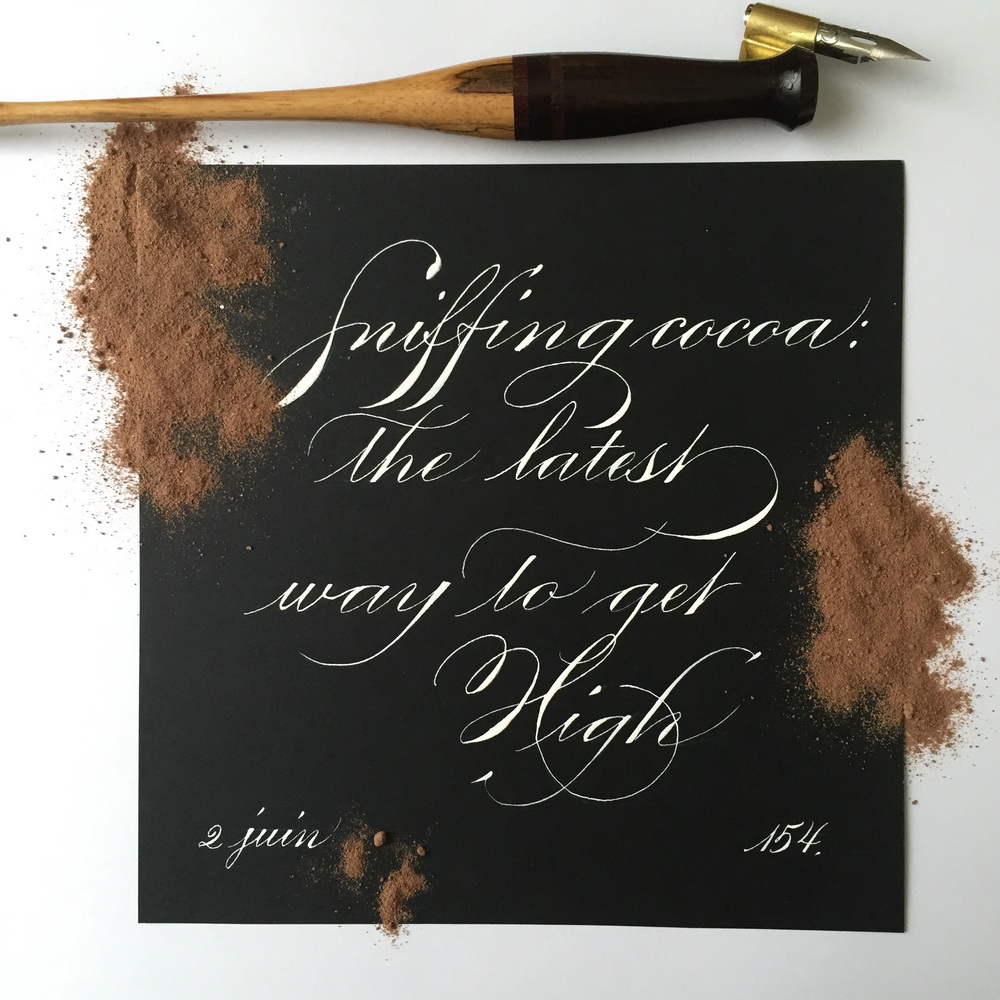 Sniffing cocoa:
The latest
way to get
High
2 juin
154.